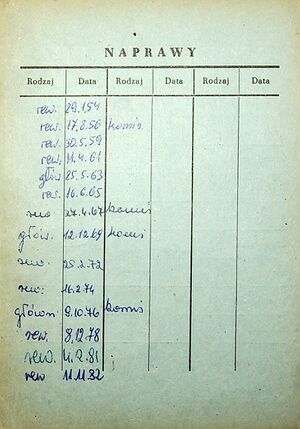 NAPRAWY
Rodzaj Data Rodzaj Data Rodzaj Data
rew. 29.1.54
rew. 17.2.56 komis
rew. 30.5.59
rew. 11.4.61
głów 25.5.63
rew. 16.6.65
27.4.67 komis
głów. 12.12.69 komis
rew. 25.2.72
rew. 16.2.74
główn. 9.10.76 komis
rew. 8.12.78
rew. 4.2.81
rew 11.11.82